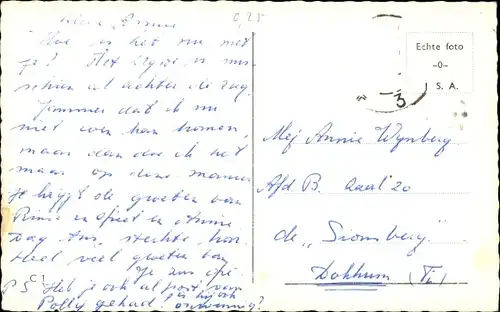 Lieve Annie
0,25
Hoe is het nu met
je? Het ergste is mis
schien al achter de rug.
Jammer dat ik nu
niet even kan komen,
maar dan doe ik het
maar op deze manier
Je krijgt de groeten van
en Annie
Dag zus, sterkte hoor
Heel veel groeten van
Je zus
P S Heb je ook al post van
Polly gehad?
Echte foto
-0-
J S. A.
Mej Annie Wynberg
Afd B. Zaal 20
de "Sionsberg"
Dokkum (Fr)